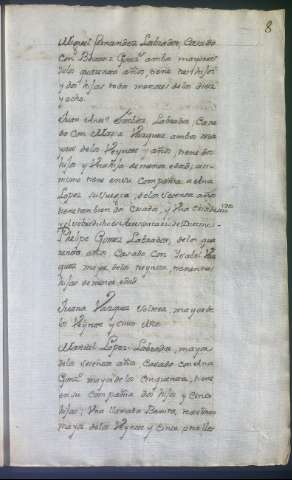 8
Miguel fernandez Labrador, Casado
con Blanca Gonz.z ambos mayores
delos quarenta años, tiene tres hijos
y dos hijas todos menores de los diez
y ocho.
Juan Ant.o Labrador, Casa
do con Maria Vazquez ambos ma
yores delos Veynte y años, tiene dos
hijos y Vna hija de menor edad; asi
mismo tiene en su Compañia a Ana
Lopez su suegra, delos sesenta años
tiene tambien do Casado, y Vna
Phelipe Gomez Labrador, delos qua
renta años Casado Con Ysabel Vaz
quez mayor delos treynta, tienen tres
hijas de menor edad
Juana Vazquez soltera, mayor de
los Veynte y cinco Años
Manuel Lopez Labrador, mayor
delos sesenta años Casado con Ana
Gonz.z mayor delos Cinquenta, tiene
en su Compañia dos hijos y Cinco
hijas; Vna llamada Benita,
mayor delos Veynte y Cinco